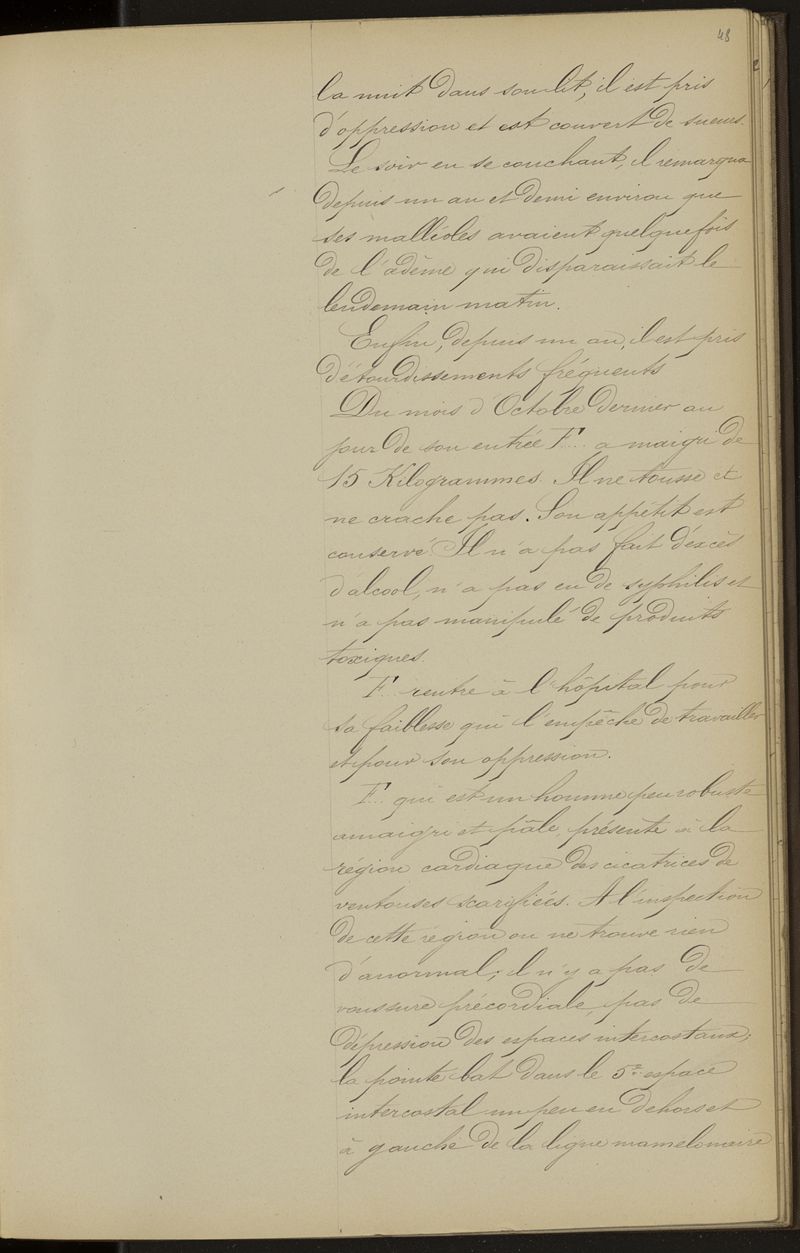 48
la nuit dans son lit, il est pris
d'oppression et est couvert de sueurs.
Le soir en se couchant, il remarqua
depuis un an et demi environ que
ses malléoles avaient quelquefois
de l'œdème qui disparaissait le
lendemain matin.
Enfin, depuis un an, il est pris
d'étourdissements fréquents
Du mois d'Octobre dernier au
jour de son entrée F... a maigri de
15 Kilogrammes. Il ne tousse et
ne crache pas. Son appétit est
conservé Il n'a pas fait d'excès
d'alcool, n'a pas eu de syphilis et
n'a pas manipulé de produits
toxiques.
F... rentre à l'hôpital pour
sa faiblesse qui l'empêche de travailler
et pour son oppression.
F... qui est un homme peu robuste
amaigri et pâle, présente à la
région cardiaque des cicatrices de
ventouses scarifiées. A l'inspection
de cette région on ne trouve rien
d'anormal; il n'y a pas de
voussure précordiale, pas de
dépression des espaces intercostaux;
la pointe bat dans le 5e espace
intercostal un peu en dehors et
à gauche de la ligne mamelonaire